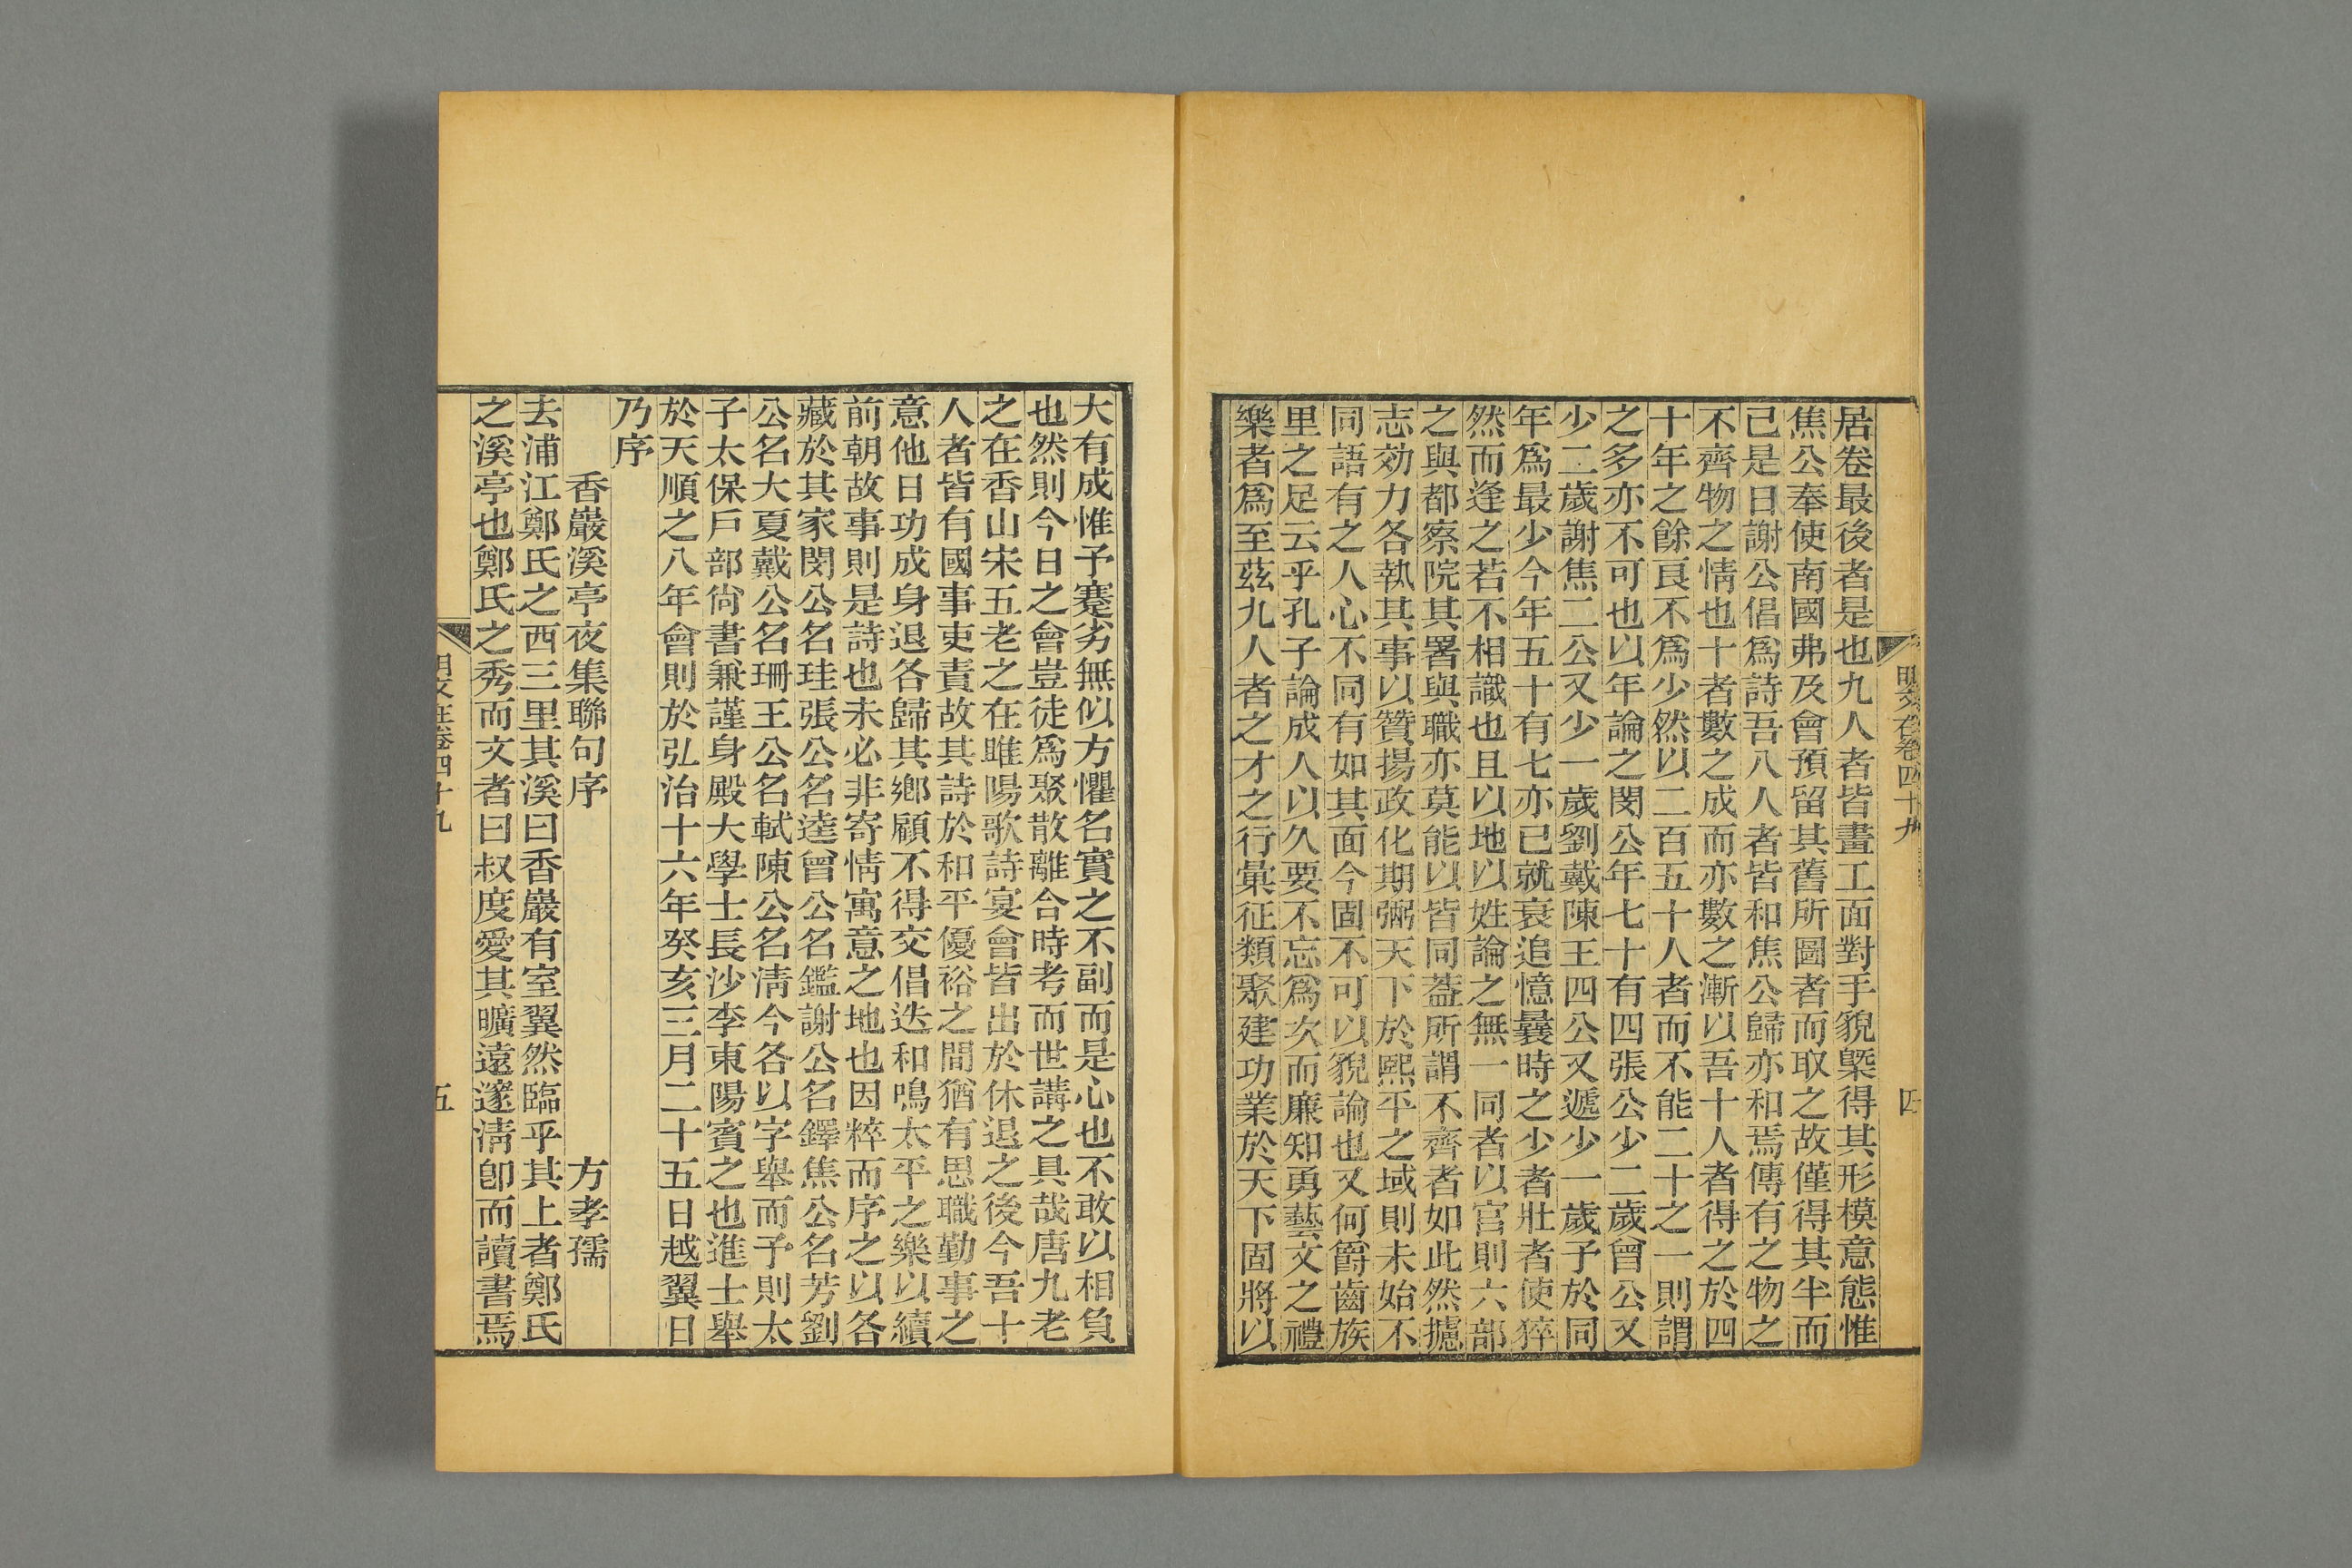 居卷最後者是也九人者皆畫工面對手貌槩得其形模意態惟
焦公奉使南國弗及會預留其舊所圖者而取之故僅得其半而
已是日謝公倡爲詩吾八人者皆和焦公歸亦和焉傳有之物之
不齊物之情也十者數之成而亦數之漸以吾十人者得之於四
十年之餘良不爲少然以二百五十人者而不能二十之一則謂
之多亦不可也以年論之閔公年七十有四張公少二歲曾公又
少二歲謝焦二公又少一歲劉戴陳王四公又遞少一歲予於同
年爲最少今年五十有七亦已就衰追憶曩時之少者壯者使猝
然而逢之若不相識也且以地以姓論之無一同者以官則六部
之與都察院其署與職亦莫能以皆同蓋所謂不齊者如此然攄
志効力各執其事以贊揚政化期弼天下於熙平之域則未始不
同語有之人心不同有如其面今固不可以貌論也又何爵齒族
里之足云乎孔子論成人以久要不忘爲次而廉知勇藝文之禮
樂者爲至茲九人者之才之行彙征類聚建功業於天下固將以
大有成惟予蹇劣無似方懼名實之不副而是心也不敢以相負
也然則今日之會豈徒爲聚散離合時考而世講之具哉唐九老
之在香山宋五老之在睢陽歌詩宴會皆出於休退之後今吾十
人者皆有國事吏責故其詩於和平優裕之間猶有思職勤事之
意他日功成身退各歸其鄉顧不得交倡迭和鳴太平之樂以續
前朝故事則是詩也未必非寄情寓意之地也因粹而序之以各
藏於其家閔公名珪張公名逵曾公名鑑謝公名鐸焦公名芳劉
公名大夏戴公名珊王公名軾陳公名淸今各以字舉而予則太
子太保戶部尙書兼謹身殿大學士長沙李東陽賓之也進士舉
於天順之八年會則於弘治十六年癸亥三月二十五日越翼日
乃序
香巖溪亭夜集聯句序 方孝孺
去浦江鄭氏之西三里其溪曰香巖有室翼然臨乎其上者鄭氏
之溪亭也鄭氏之秀而文者曰叔度愛其曠遠邃淸卽而讀書焉
卷四十九
五